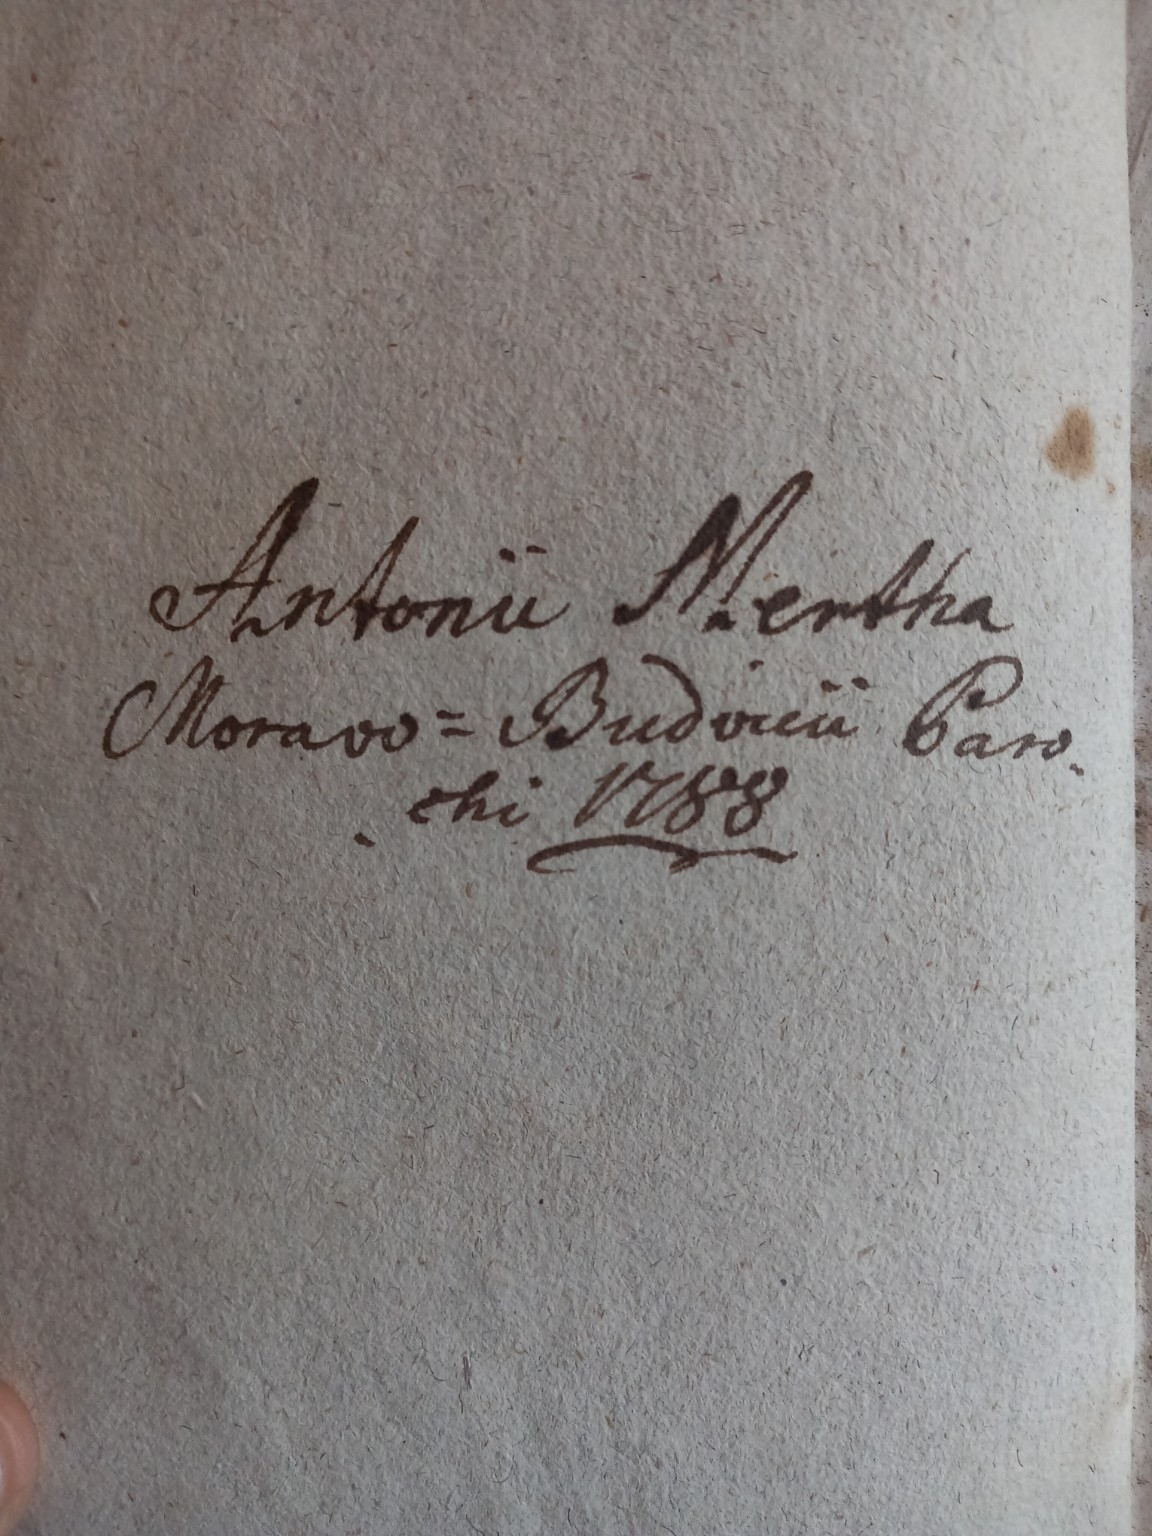 Antonii Mertha
Moravo= Budvicii Paro-
chi 1788